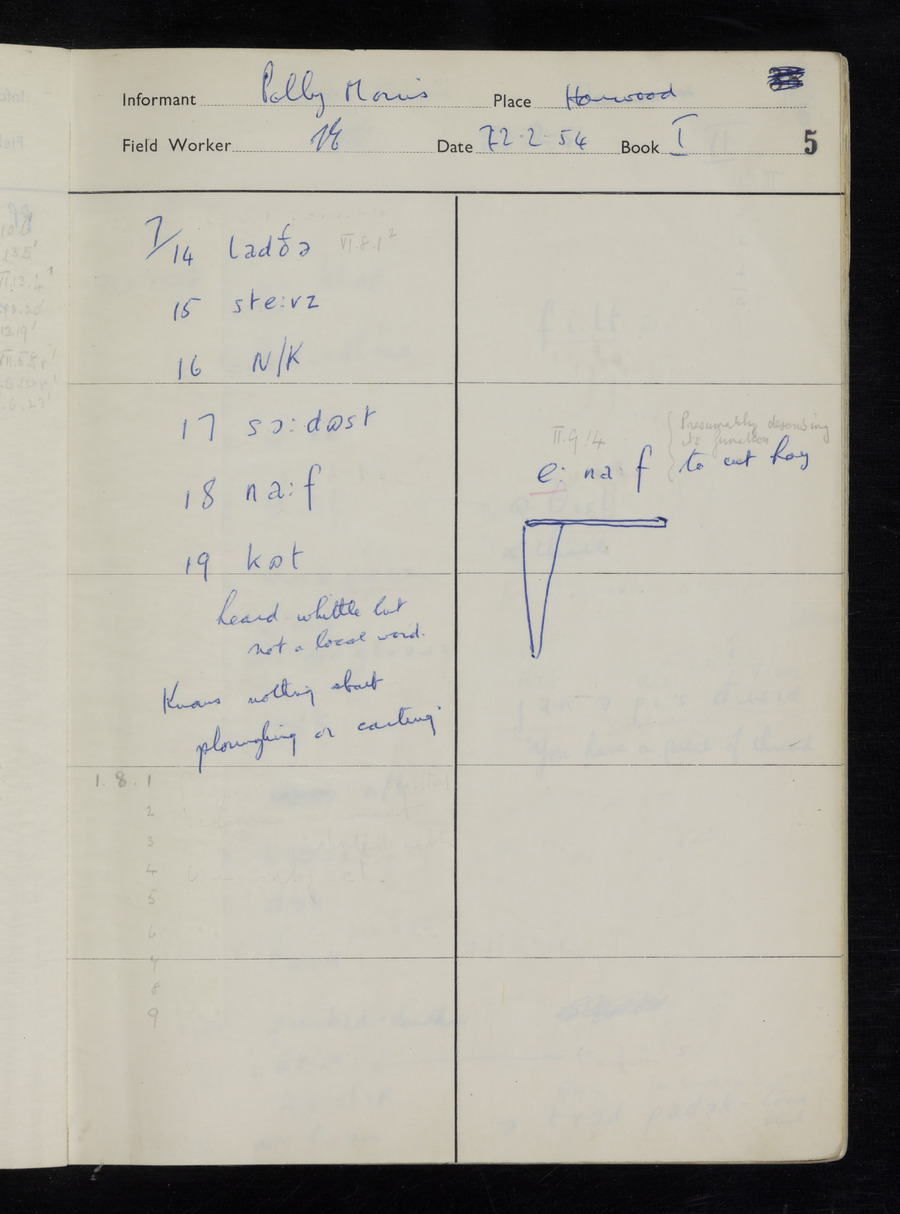 Informant Polly Morris Place Harwood
Field Worker Date 22-2-54 Book I 5
7/14 ladðə VI.8.1²
15 ste:vz
16 N/K
17 sɔ:dɷst
II.9.14 {Presumably describing
its function
e: na:f to cut hay
18 na:f
19 kɷt
heard whittle but
not a local word.
Knows nothing about
ploughing or carting
1.8.1
2
3
4
5
6
7
8
9